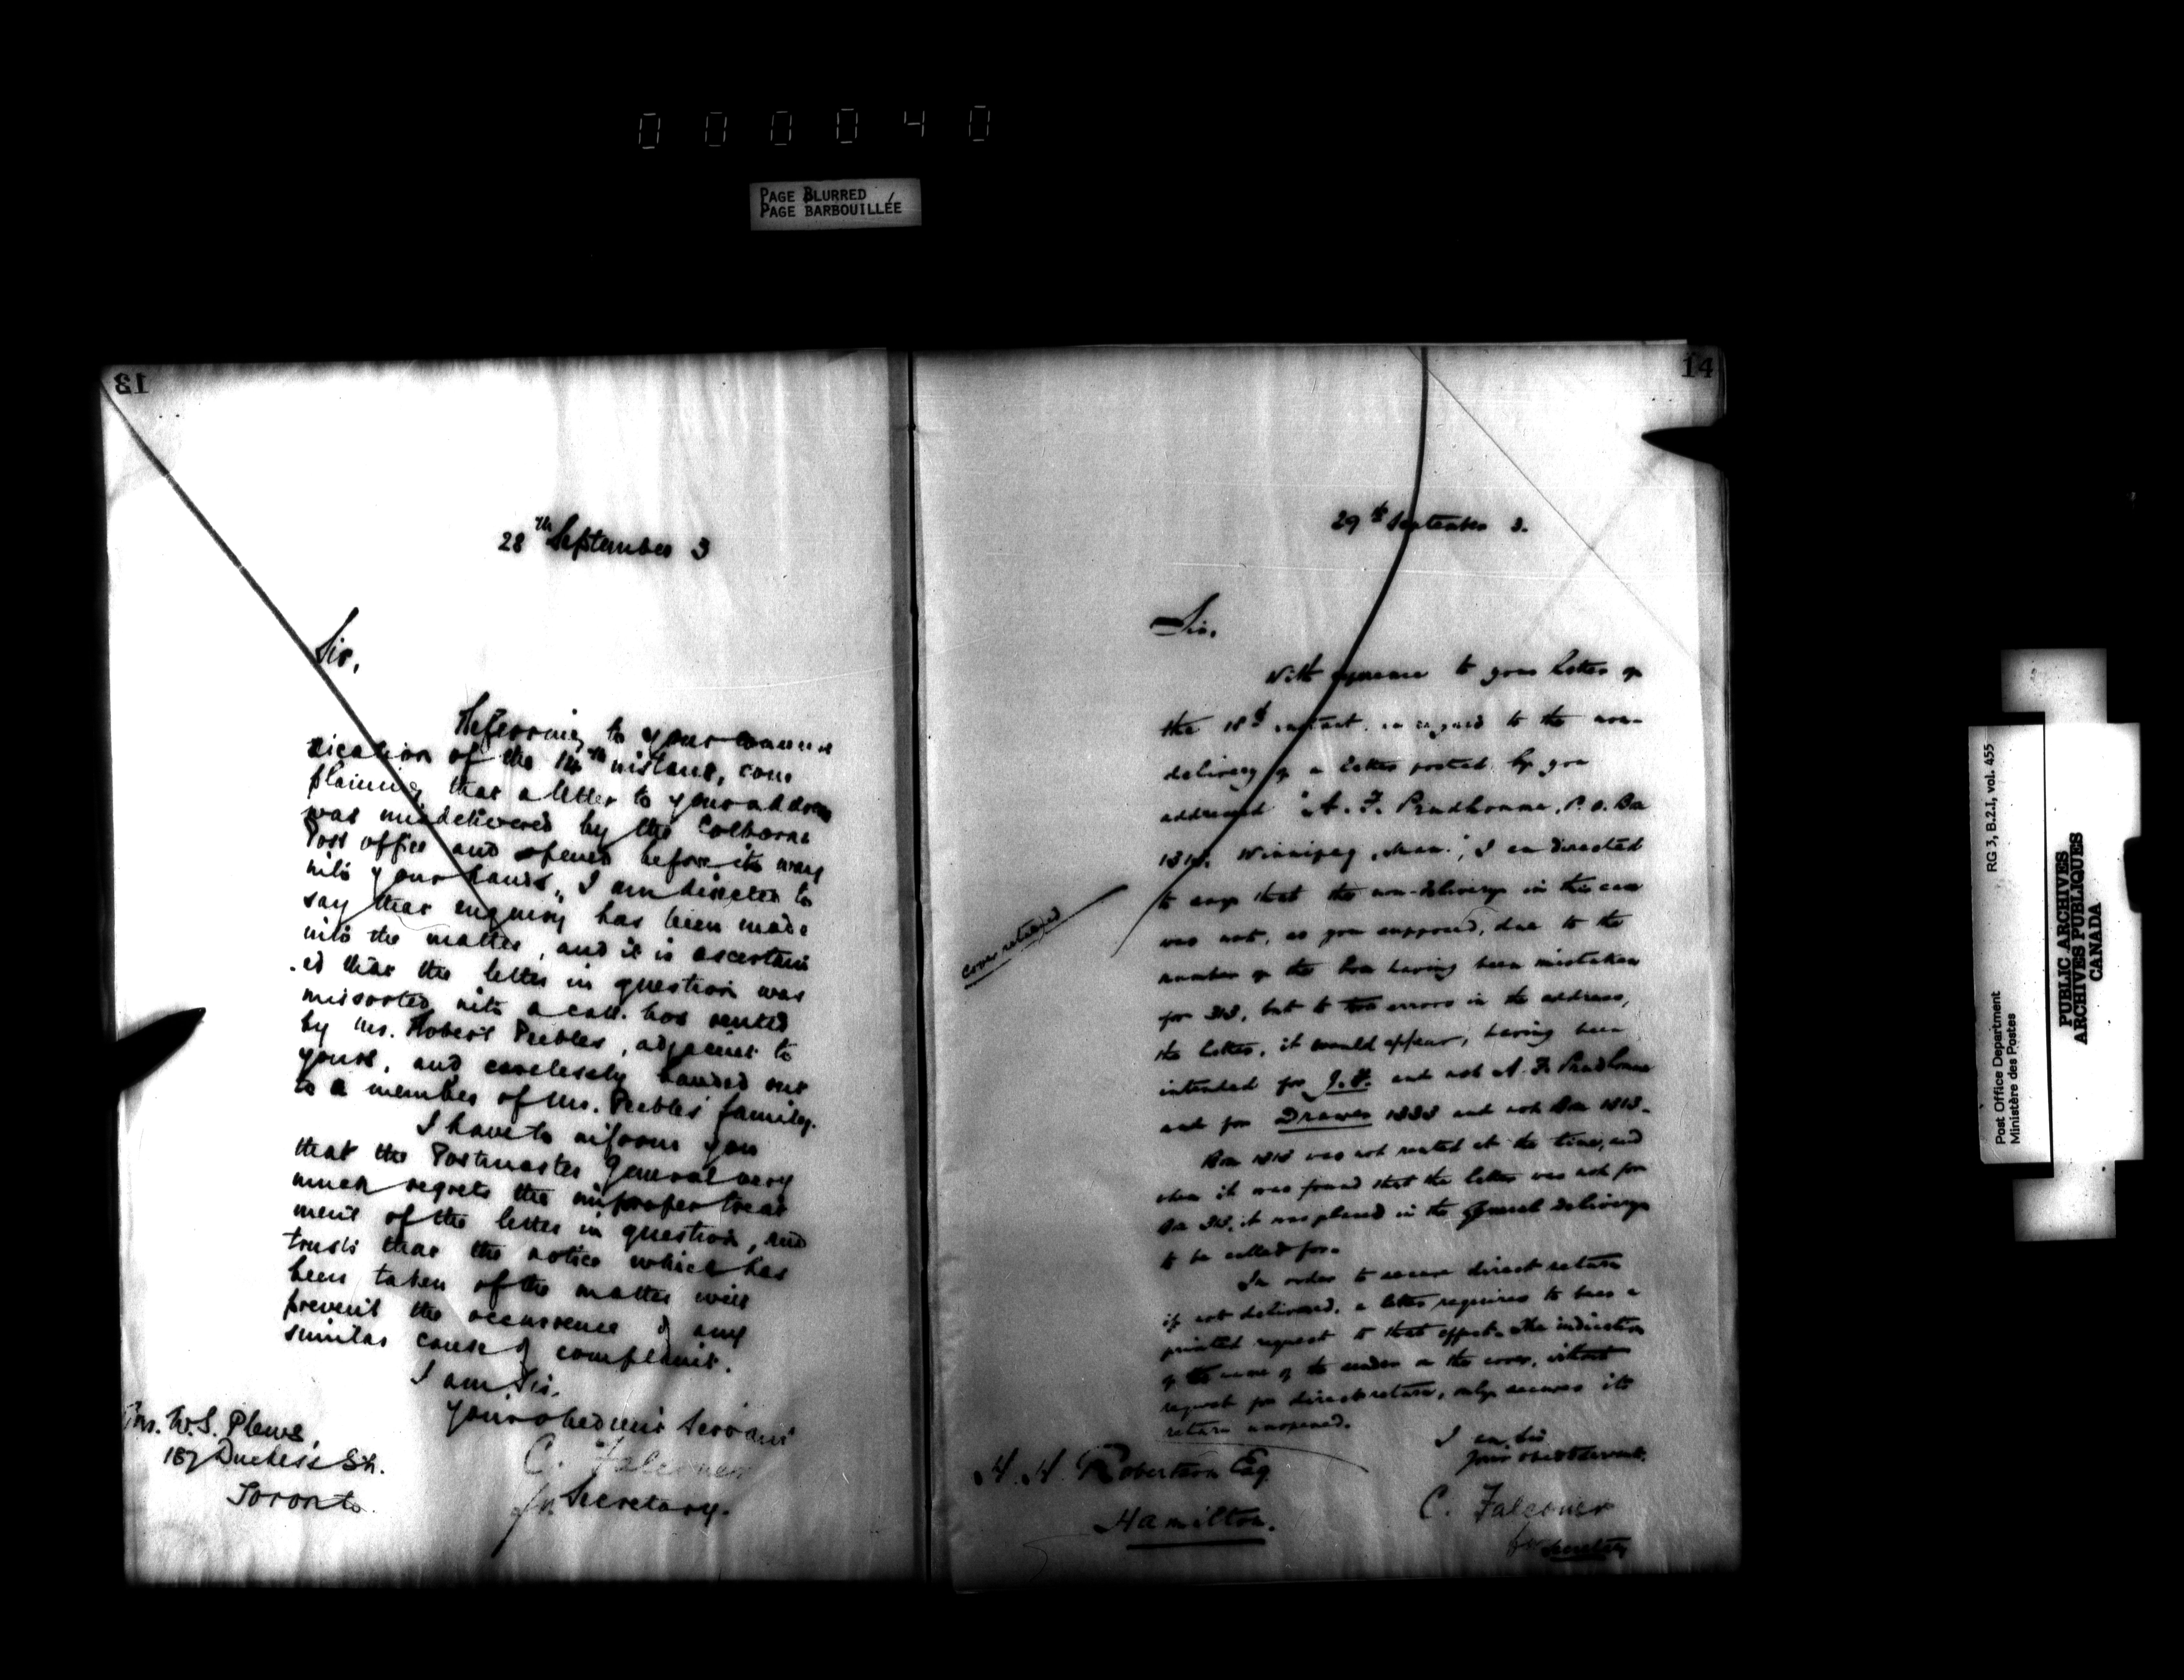 000040
PAGE BLURRED
PAGE BARBOUILLÉE
13
28th September 3
Sir,
Referring to your commu
nication of the 14th instant, com
plaining that a letter to your address
was misdelivered by the Colborne
Post office and opened before it
into your hands, I am directed to
say that enquiry has been made
into the matter, and it is ascertain
ed that the letter in question was
missorted into a call box rented
by Mr. Robert Peebles, adjacent to
yours, and carelessly handed out
to a member of Mr. Peebles' family.
I have to inform you
that the Postmaster General very
much regrets the improper treat
ment of the letter in question, and
trusts that the notice which has
been taken of the matter will
prevent the occurrence of any
similar cause of complaint.
I am, Sir,
Your obedient Servant
C. Falconer
for Secretary.
W.S. Plews,
187 Duchess St.
Toronto.
14
29th September 3.
Sir,
With reference to your letter of
the 18th instant, in regard to the non-
delivery of a letter posted by you
addressed "A. F. Prudhomme, P.O. Box
1313, Winnipeg, Man.", I am directed
to say that the non-delivery in this case
was not, as you supposed, due to the
number of the box having been mistaken
for 313, but to two errors in the address,
the letter, it would appear, having been
intended for J.F. and not A. F. Prudhomme
and for Drawer 1333 and not Box 1313.
Box 1313 was not rented at the time, and
when it was found that the letter was not for
Box 313, it was placed in the General delivery
to be called for.
In order to secure direct return
if not delivered, a letter requires to bear a
printed request to that effect. The indication
of the name of the sender on the cover, without
request for direct return, only secures its
return unopened.
I am, Sir
Your obedt Servant.
C. Falconer
for Secretary
cover retained
H. H. Robertson Esq
Hamilton.
Post Office Department
Ministère des Postes
RG 3, B.2.I, vol. 455
PUBLIC ARCHIVES
ARCHIVES PUBLIQUES
CANADA